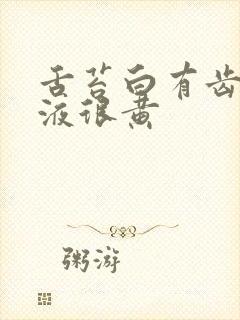 舌苔白有齿
液很黄
粥游